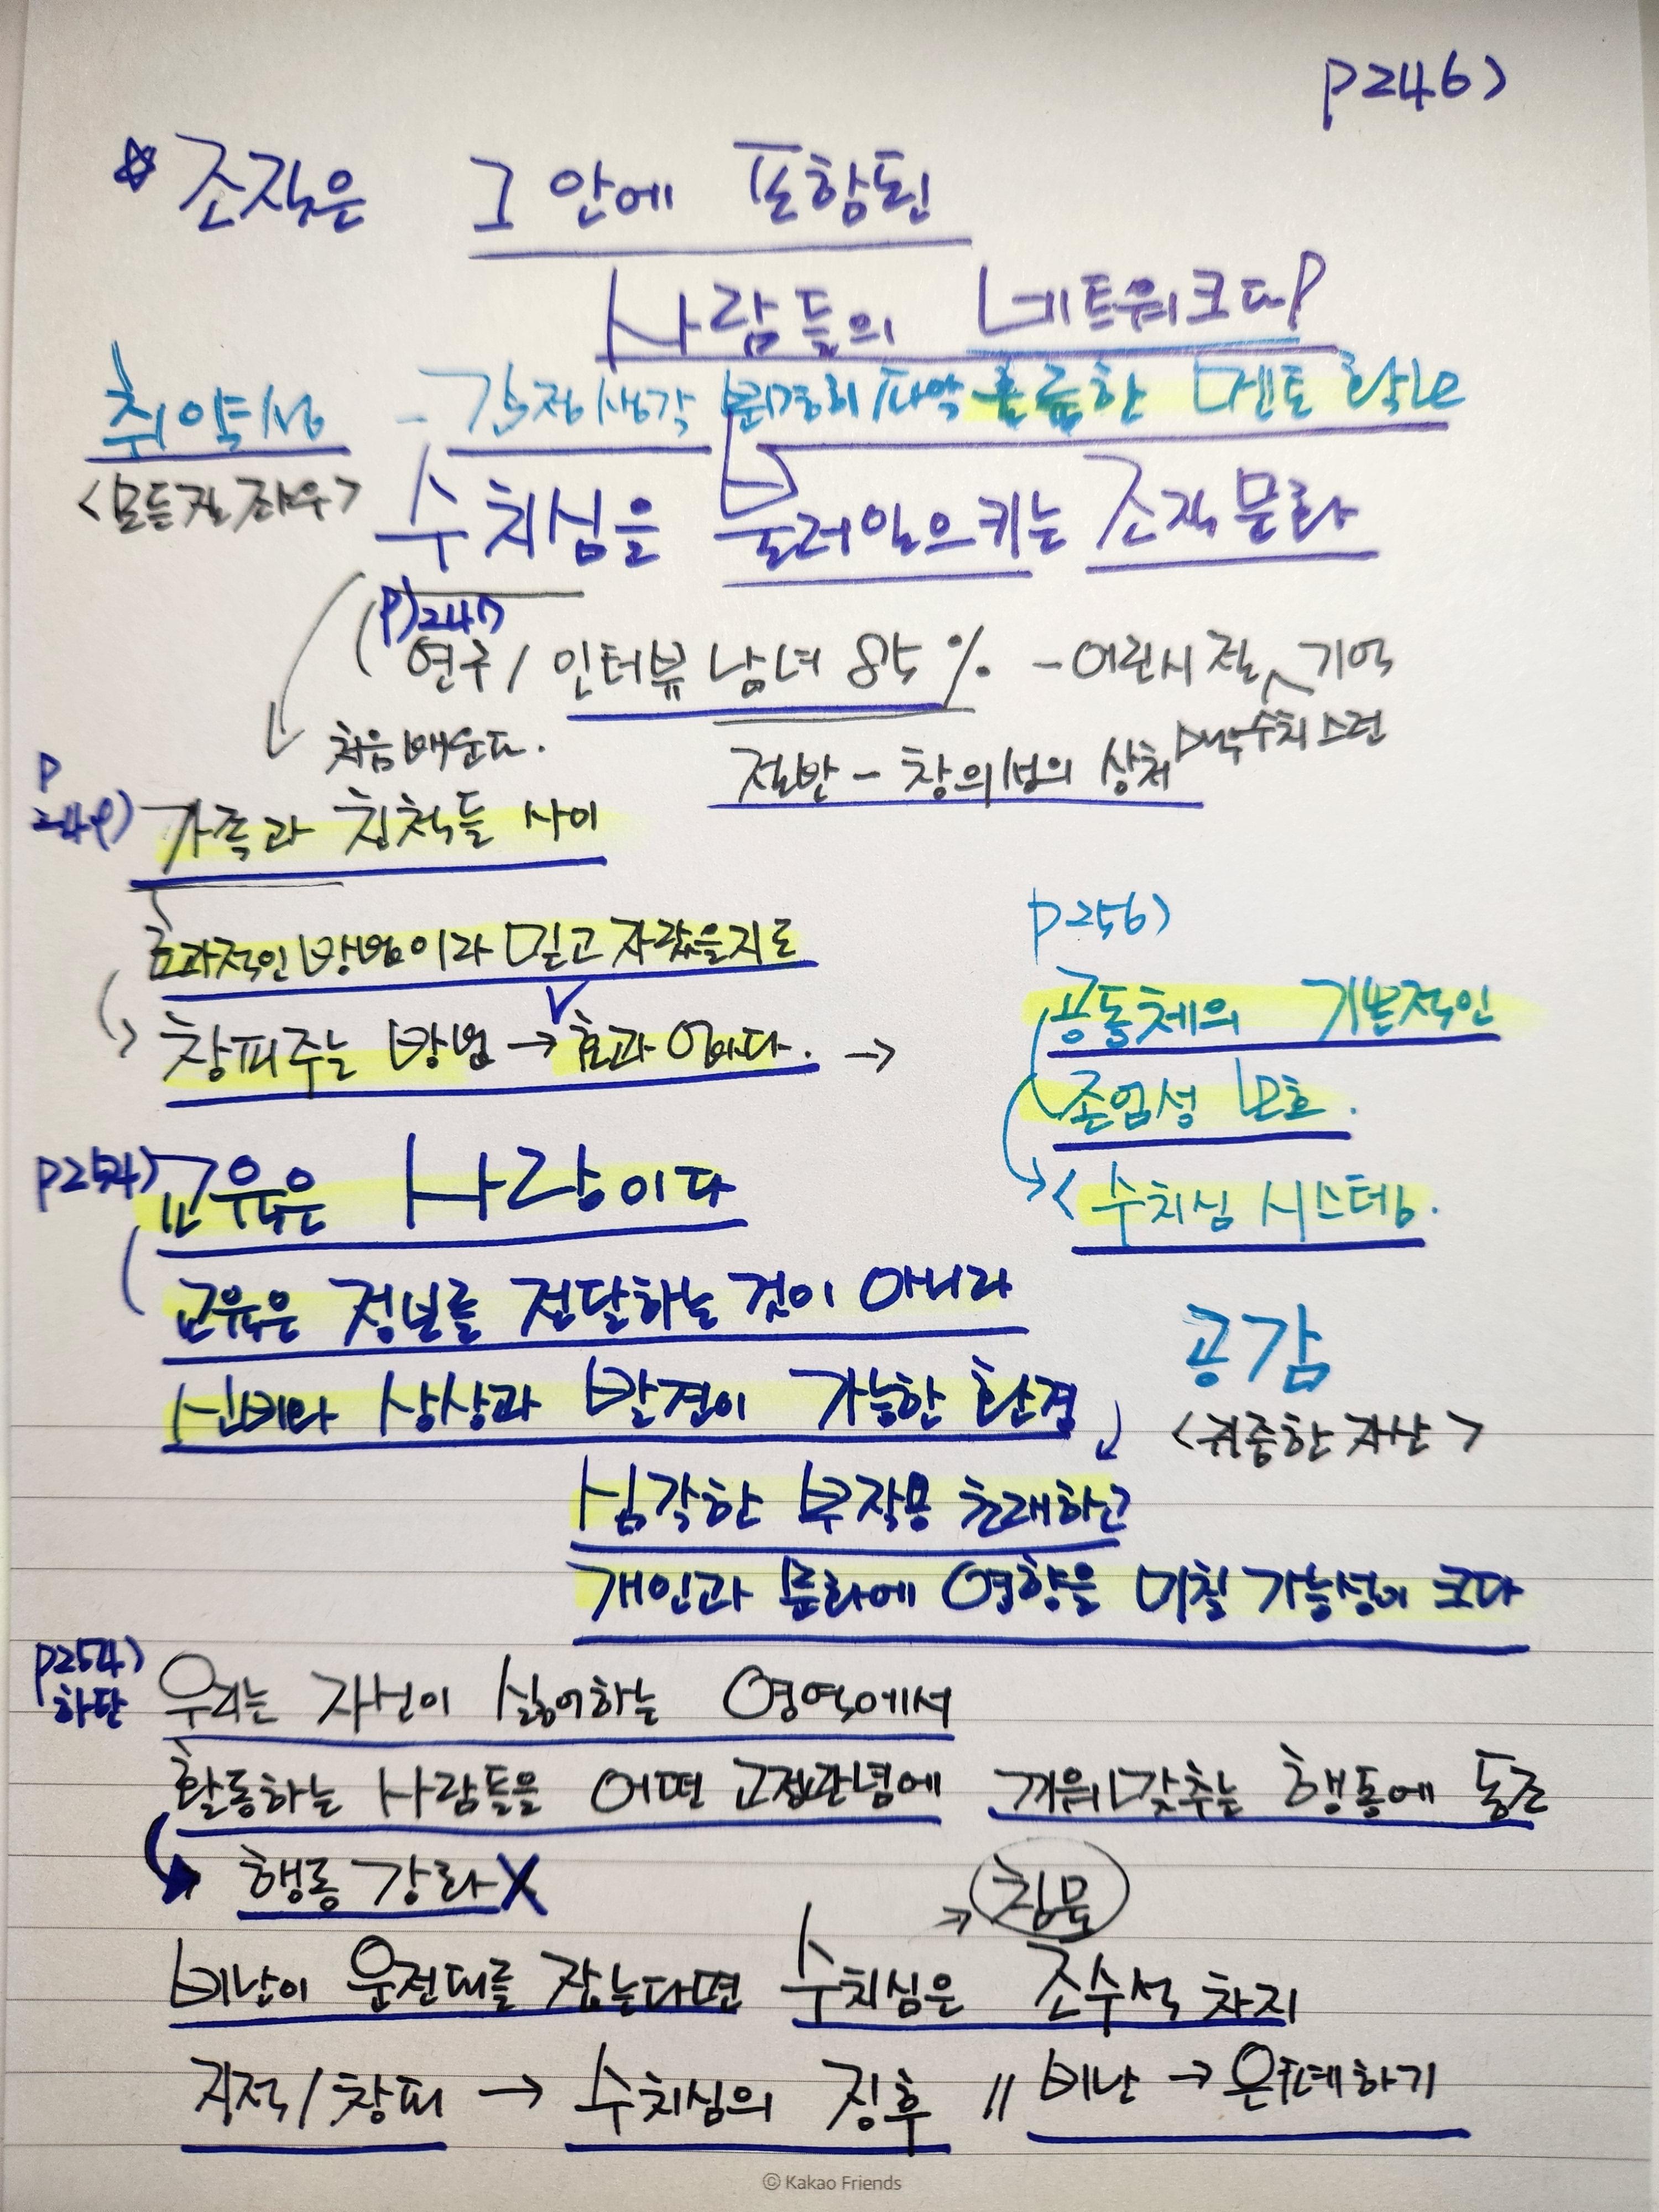 P246)
☆ 조직은 그 안에 포함된
사람들의 네트워크다
취약성 - 감정/생각 환경회/파악 훌륭한 멘토 확보
<모든걸 좌우>
수치심을 불러일으키는 조직문화
P)247
(연구/인터뷰 남녀 85% - 어린시절 기억
처음 배운다.
절반 - 창의성의 상처
수치스런
P
249)
가족과 친척들 사이
효과적인 방법이라 믿고 자랐을지도
창피주는 방법 → 효과 없다. →
P256)
공동체의 기본적인
존엄성 보호.
< 수치심 시스템.
P254) 교육은 사랑이다
교육은 정보를 전달하는 것이 아니라
신비와 상상과 발견이 가능한 환경
공감
<귀중한 자산>
심각한 부작용 초래하고
개인과 문화에 영향을 미칠 가능성이 크다
P254)
하단
우리는 자신이 싫어하는 영역에서
활동하는 사람들을 어떤 고정관념에 끼워맞추는 행동에 동조
행동 강화X
→ 침묵
비난이 운전대를 잡는다면 수치심은 조수석 차지
지적/창피 → 수치심의 징후 // 비난 → 은폐하기
© Kakao Friends